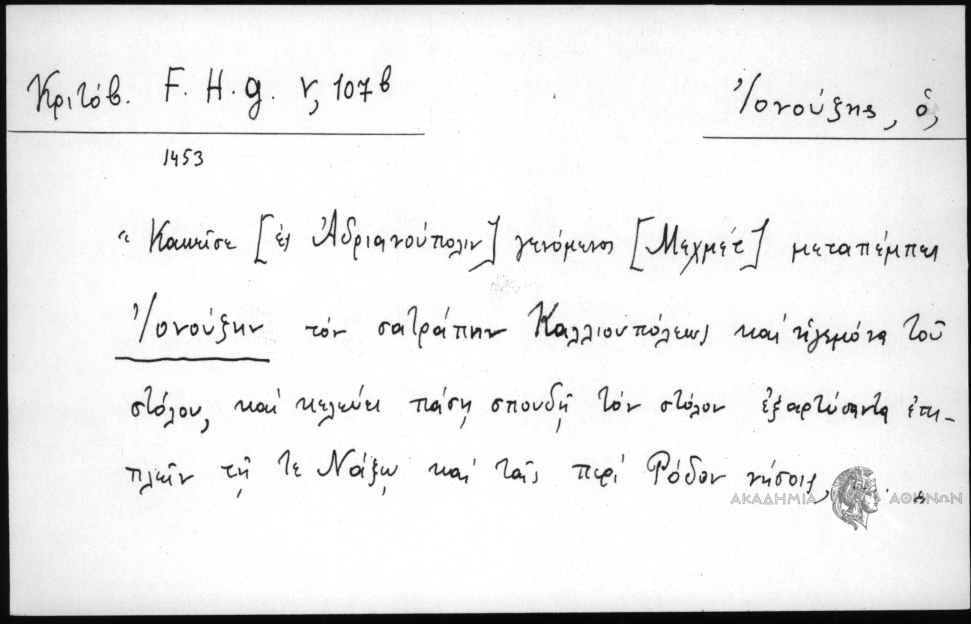 Κριτόβ. F. H. g. V, 107 β
Ἰονούξης, ὁ,
1453
“Κακεῖσε [ἐς Ἀδριανούπολιν] γενόμενος [Μεχμέτ] μεταπέμπει
Ἰονούξην τὸν σατράπην Καλλιουπόλεως καὶ ἡγεμόνα τοῦ
στόλου, καὶ κελεύει πάσῃ σπουδῇ τὸν στόλον ἐξαρτύσαντα ἐπι-
πλεῖν τῇ τε Νάξῳ καὶ ταῖς περὶ Ῥόδον νήσοις,
ΑΚΑΔΗΜΙΑ ΑΘΗΝΩΝ